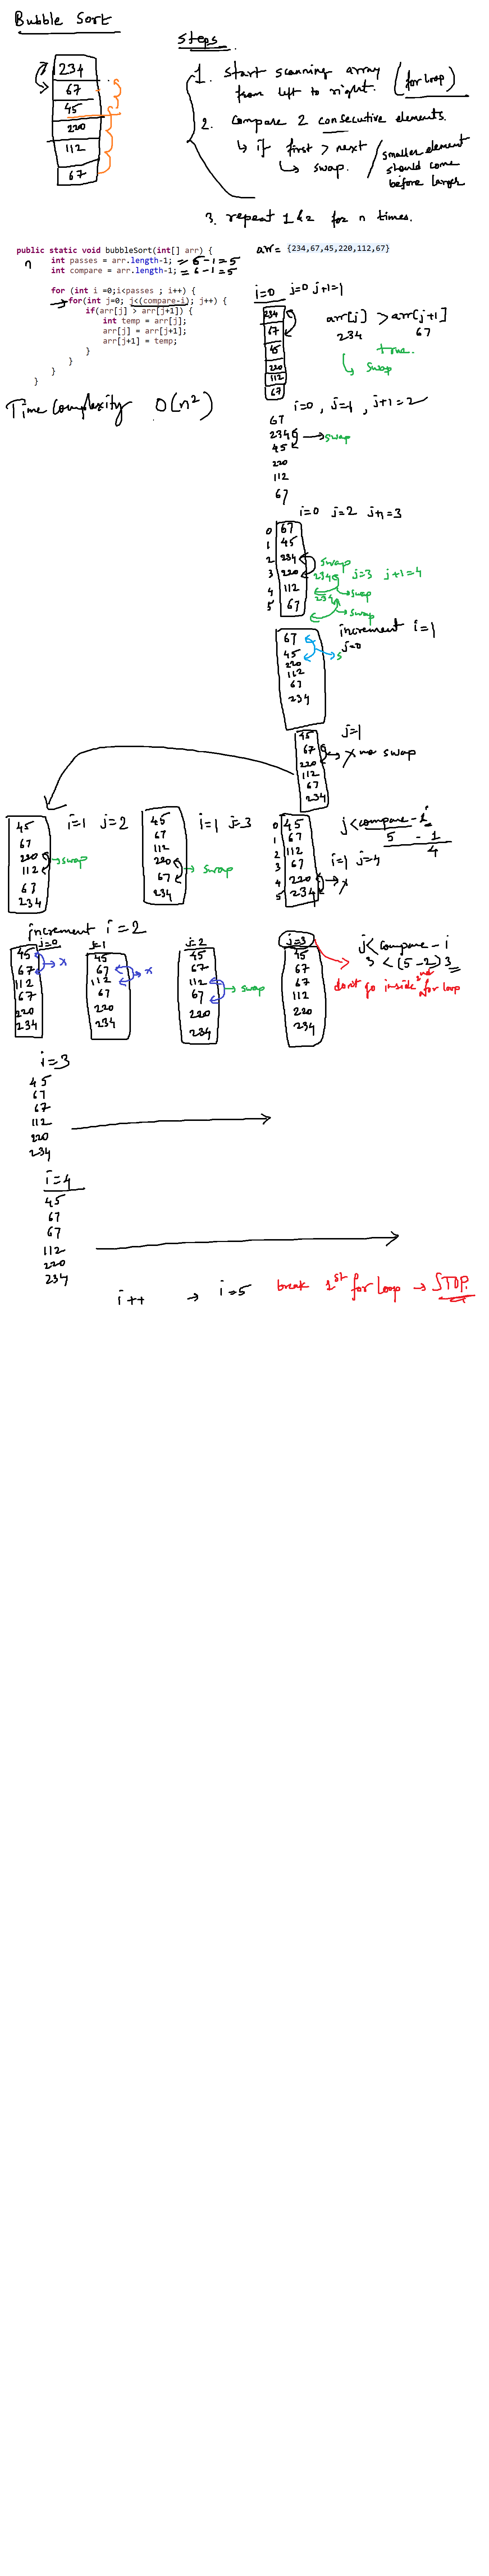 Bubble Sort
234
67
45
220
112
67
Steps
1. Start scanning array (for loop)
from left to right.
2. Compare 2 consecutive elements.
↳ if first > next
↳ swap.
smaller element
should come
before larger
3. repeat 1 & 2 for n times.
public static void bubbleSort(int[] arr) {
n int passes = arr.length-1; = 6-1=5
int compare = arr.length-1; = 6-1=5
for (int i =0;i<passes ; i++) {
for(int j=0; j<(compare-i); j++) {
if(arr[j] > arr[j+1]) {
int temp = arr[j];
arr[j] = arr[j+1];
arr[j+1] = temp;
}
}
}
}
Time Complexity O(n²)
arr = {234,67,45,220,112,67}
i=0 j=0 j+1=1
234
67
45
220
112
67
arr[j] > arr[j+1]
234 67
true.
↳ swap
i=0, j=1, j+1=2
67
234 → swap
45
220
112
67
i=0 j=2 j+1=3
0 67
1 45
2 234 swap
3 220 234 j=3 j+1=4
4 112 234 → swap
5 67 → swap
increment i=1
j=0
67
45 → s
220
112
67
234
j=1
45
67 → x no swap
220
112
67
234
i=1 j=2
45
67
220 → swap
112
67
234
i=1 j=3
45
67
112
220 → swap
67
234
j < compare - i
5 - 1
4
i=1 j=4
0 45
1 67
2 112
3 67
4 220 → x
5 234
increment i=2
j=0
45 → x
67
112
67
220
234
j=1
45
67 → x
112
67
220
234
j=2
45
67
112 → swap
67
220
234
j=3
45
67
67
112
220
234
j < compare - i
3 < (5-2) 3
dont go inside 2nd for loop
i=3
45
67
67
112
220
234
i=4
45
67
67
112
220
234
i++ → i=5 break 1st for loop → STOP.